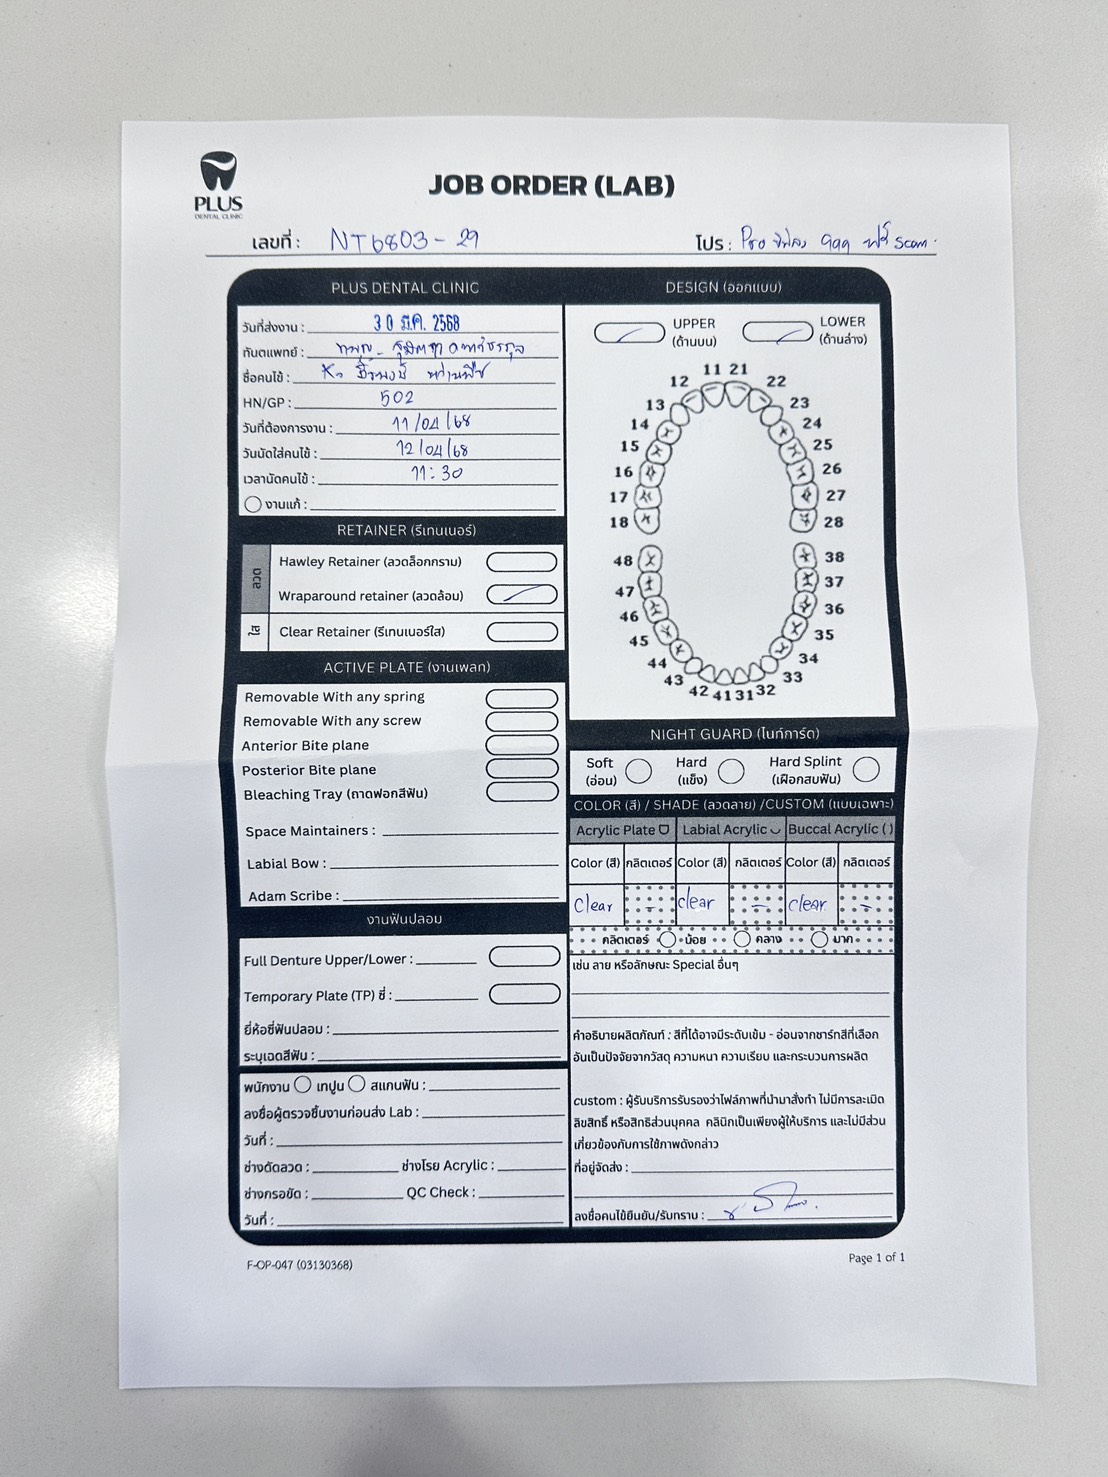 PLUS
DENTAL CLINIC
JOB ORDER (LAB)
เลขที่ : NT6803-29
โปร : Pro 999 ฟรี scan.
PLUS DENTAL CLINIC
วันที่ส่งงาน : 30 มี.ค. 2568
ทันตแพทย์ : ทพญ.
ชื่อคนไข้ : K.
HN/GP : 502
วันที่ต้องการงาน : 11/04/68
วันนัดใส่คนไข้ : 12/04/68
เวลานัดคนไข้ : 11:30
งานแก้ :
RETAINER (รีเทนเนอร์)
ลวด
Hawley Retainer (ลวดล็อกกราม)
Wraparound retainer (ลวดล้อม)
ใส
Clear Retainer (รีเทนเนอร์ใส)
ACTIVE PLATE (งานเพลท)
Removable With any spring
Removable With any screw
Anterior Bite plane
Posterior Bite plane
Bleaching Tray (ถาดฟอกสีฟัน)
Space Maintainers :
Labial Bow :
Adam Scribe :
งานฟันปลอม
Full Denture Upper/Lower :
Temporary Plate (TP) ซี่ :
ยี่ห้อซี่ฟันปลอม :
ระบุเฉดสีฟัน :
พนักงาน เทปูน สแกนฟัน :
ลงชื่อผู้ตรวจชิ้นงานก่อนส่ง Lab :
วันที่ :
ช่างดัดลวด : ช่างโรย Acrylic :
ช่างกรอขัด : QC Check :
วันที่ :
DESIGN (ออกแบบ)
UPPER (ด้านบน)
LOWER (ด้านล่าง)
11 21
12 22
13 23
14 24
15 25
16 26
17 27
18 28
48 38
47 37
46 36
45 35
44 34
43 33
42 41 31 32
NIGHT GUARD (ไนท์การ์ด)
Soft (อ่อน)
Hard (แข็ง)
Hard Splint (เฝือกสบฟัน)
COLOR (สี) / SHADE (ลวดลาย) /CUSTOM (แบบเฉพาะ)
Acrylic Plate Labial Acrylic Buccal Acrylic ( )
Color (สี) กลิตเตอร์ Color (สี) กลิตเตอร์ Color (สี) กลิตเตอร์
Clear - clear - clear -
กลิตเตอร์ น้อย กลาง มาก
เช่น ลาย หรือลักษณะ Special อื่นๆ
คำอธิบายผลิตภัณฑ์ : สีที่ได้อาจมีระดับเข้ม - อ่อนจากชาร์ทสีที่เลือก
อันเป็นปัจจัยจากวัสดุ ความหนา ความเรียบ และกระบวนการผลิต
custom : ผู้รับบริการรับรองว่าไฟล์ภาพที่นำมาสั่งทำ ไม่มีการละเมิด
ลิขสิทธิ์ หรือสิทธิส่วนบุคคล คลินิกเป็นเพียงผู้ให้บริการ และไม่มีส่วน
เกี่ยวข้องกับการใช้ภาพดังกล่าว
ที่อยู่จัดส่ง :
ลงชื่อคนไข้ยืนยัน/รับทราบ :
F-OP-047 (03130368)
Page 1 of 1